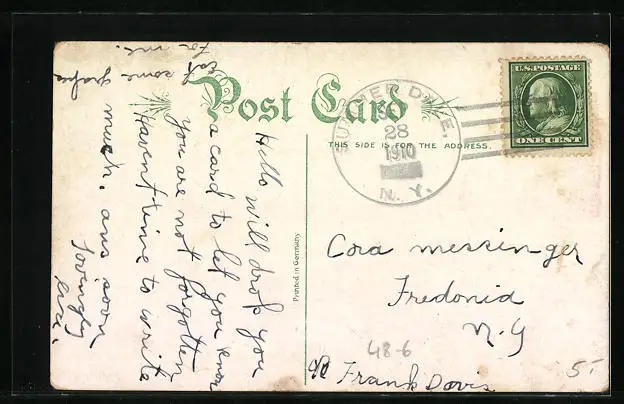 Post Card
THIS SIDE IS FOR THE ADDRESS.
U.S. POSTAGE
ONE CENT
28
1910
N. Y.
Printed in Germany
Hello will drop you
a card to let you know
you are not forgotten
Havent time to write
much. ans soon
Lovingly
Eat some grapes
for me.
Cora messinger
Fredonia
N. Y
48-6
c/o Frank Davis
5-